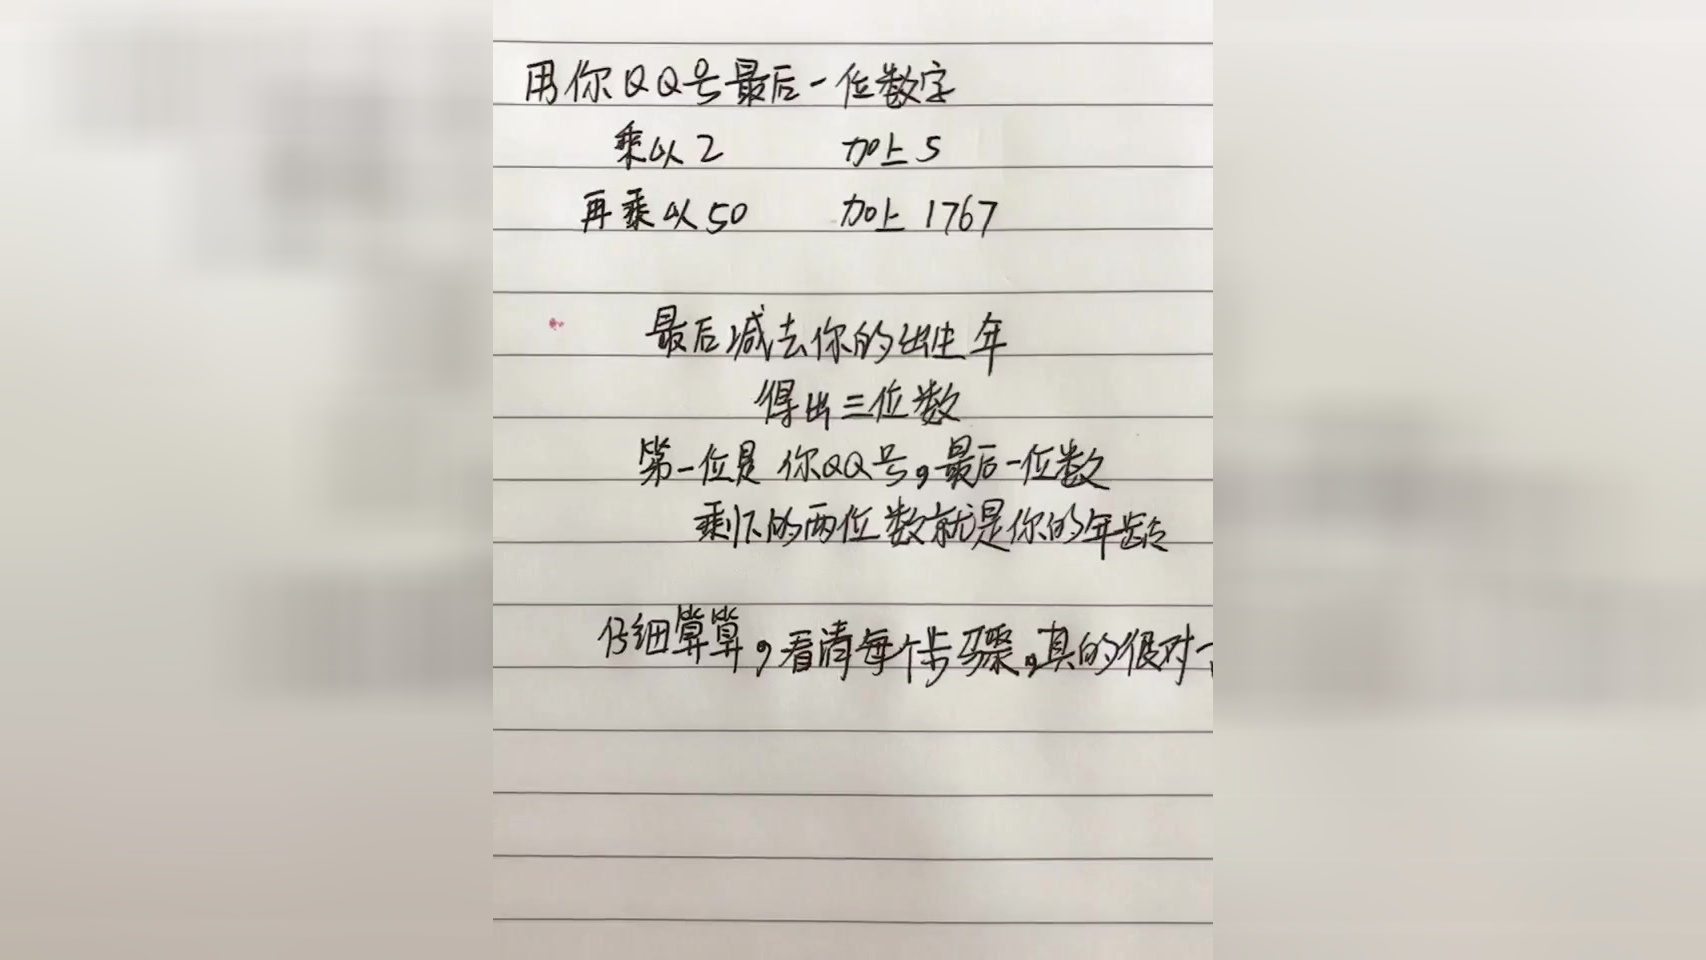 用你QQ号最后一位数字
乘以2 加上5
再乘以50 加上1767
最后减去你的出生年
得出三位数
第一位是你QQ号,最后一位数
剩下的两位数就是你的年龄
仔细算算,看清每个步骤,真的很对